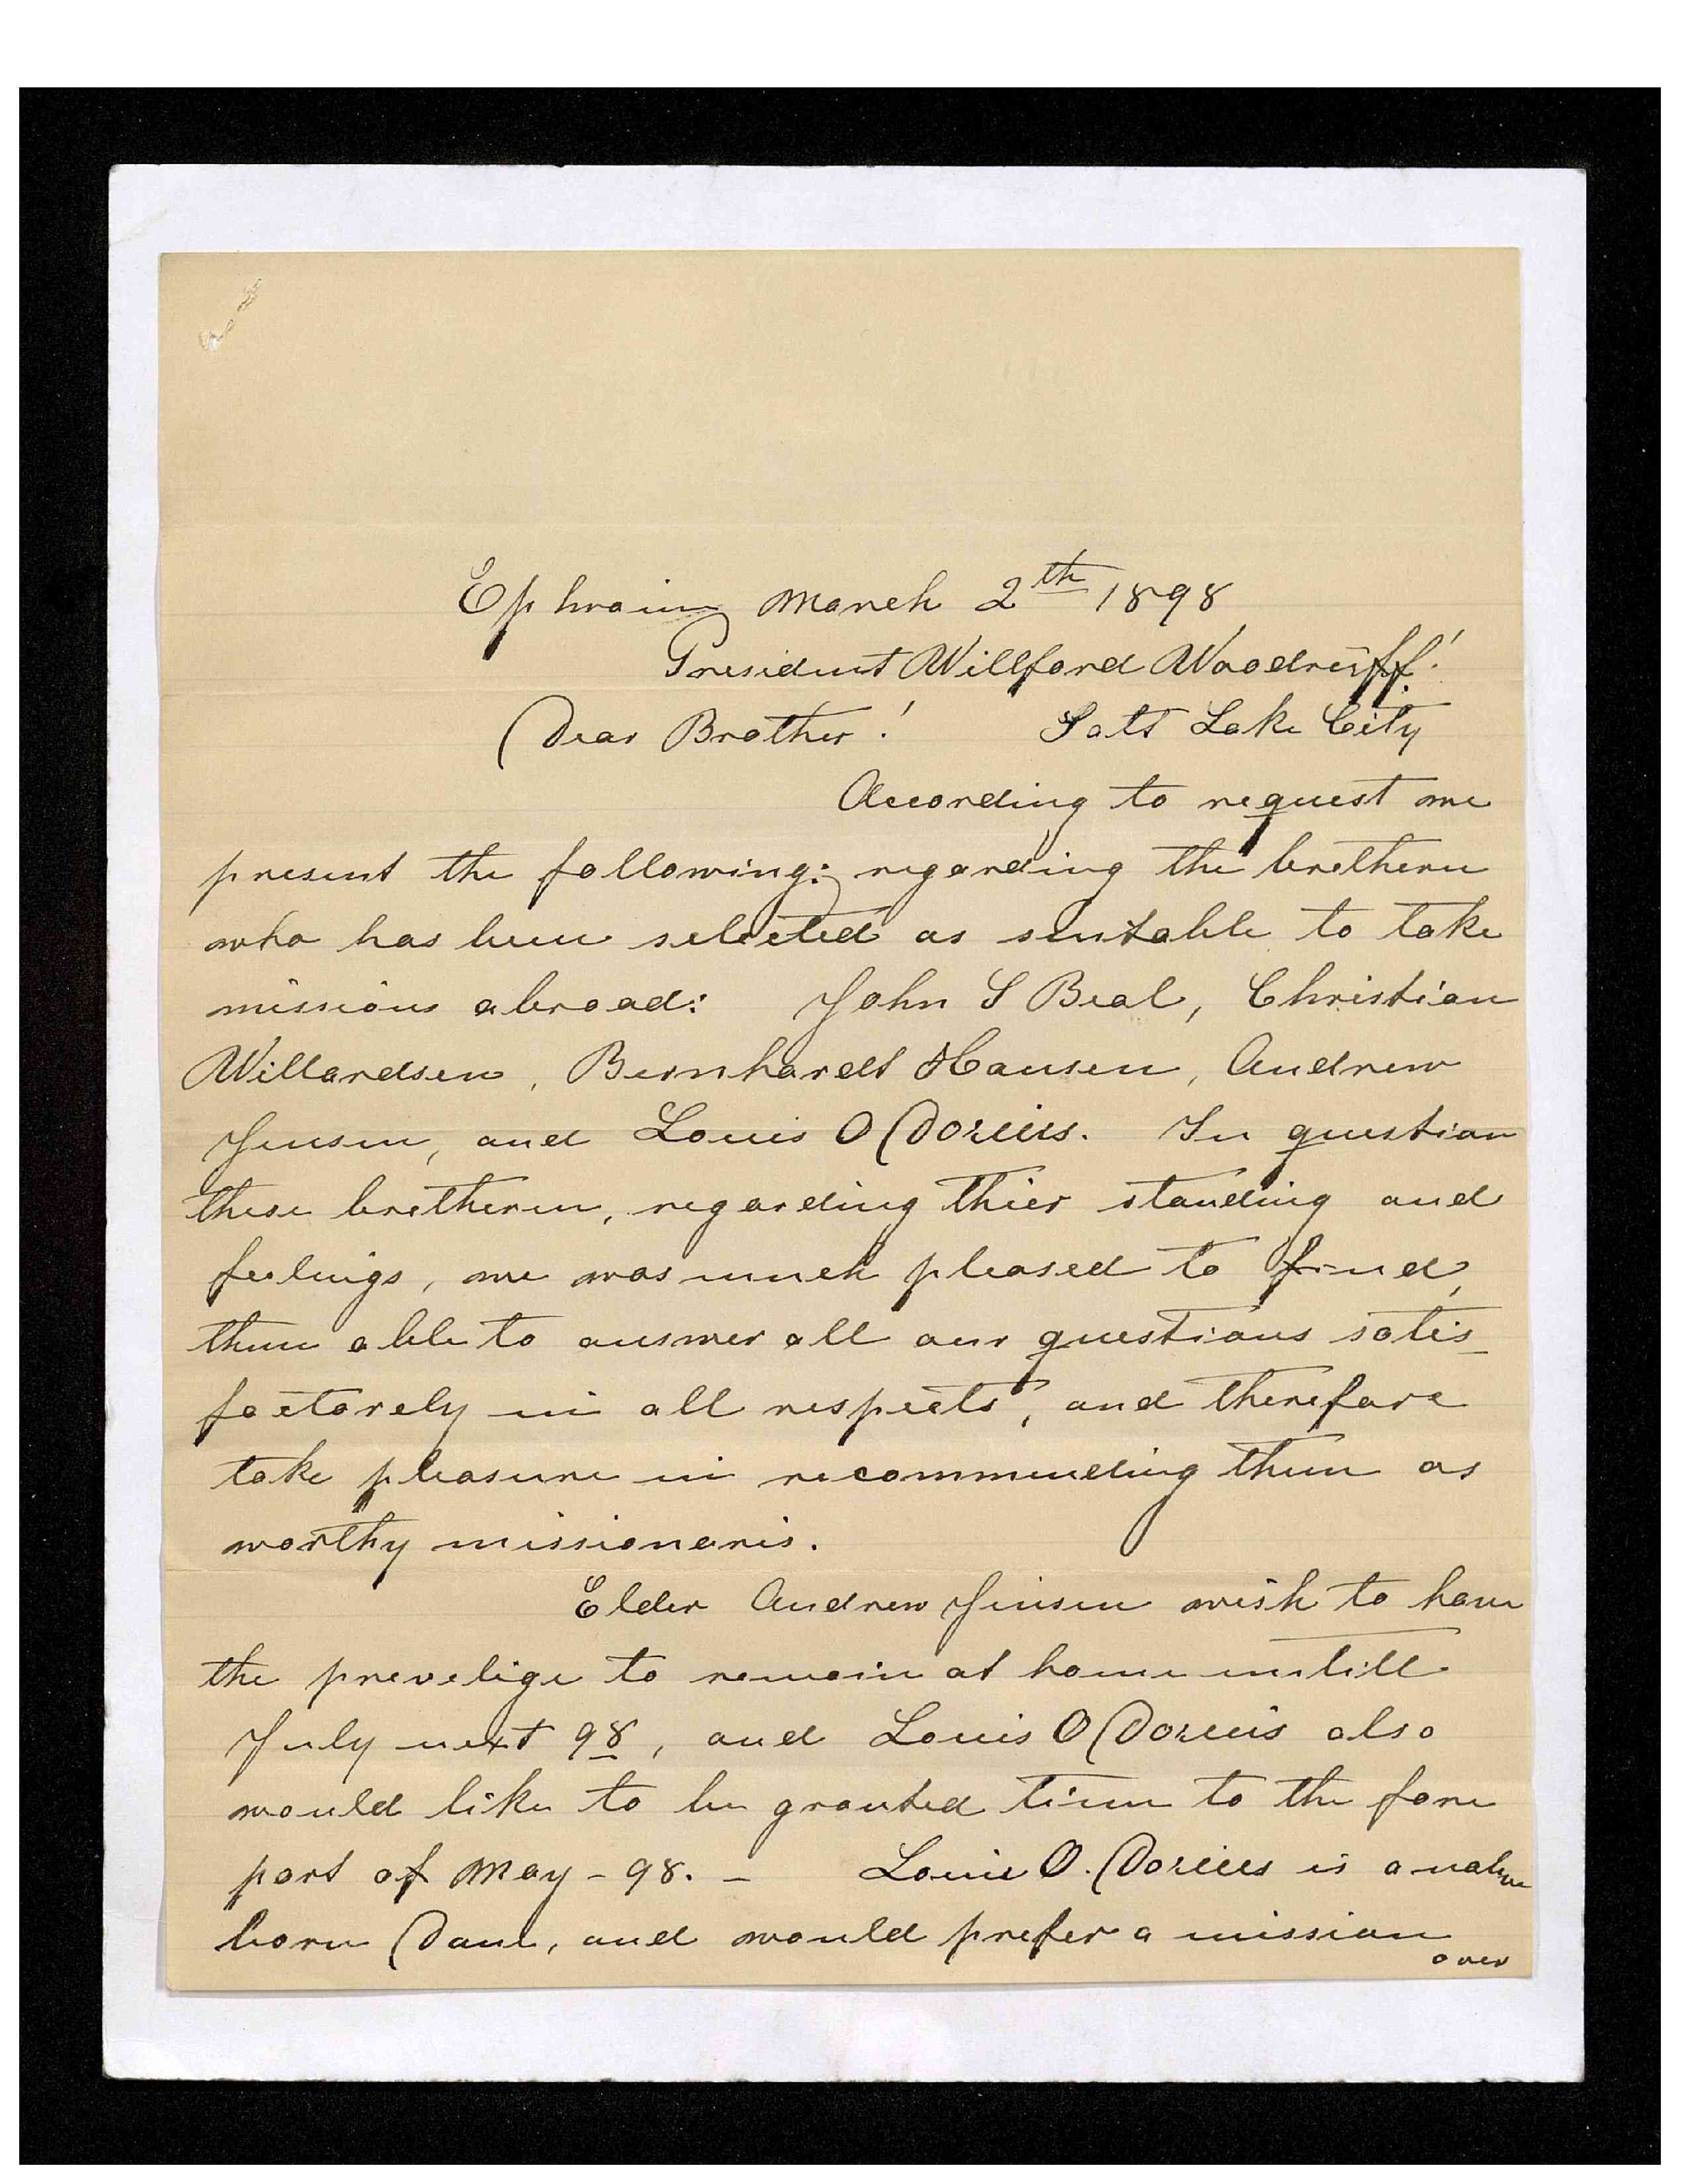 Ephraim March 2th 1898
President Willford Woodruff!
Dear Brother! Salt Lake City
According to request we
present the following: regarding the bretheren
who has been selected as suitable to take
missions abroad: John S Beal, Christian
Willardsen, Bernhardt Hansen, Andrew
Jensen, and Louis O Dorius. In question
these bretheren, regarding thier standing and
feelings, we was much pleased to find,
them able to answer all our questions satis_
factorely in all respects, and therefore
take pleasure in recommending them as
worthy missionaris.
Elder Andrew Jensen wish to have
the prevelige to remain at home untill
July next 98, and Louis O Dorius also
would like to be granted time to the fore
part of May - 98. - Louie O. Dorius is a native
born Dane, and would prefer a mission
over